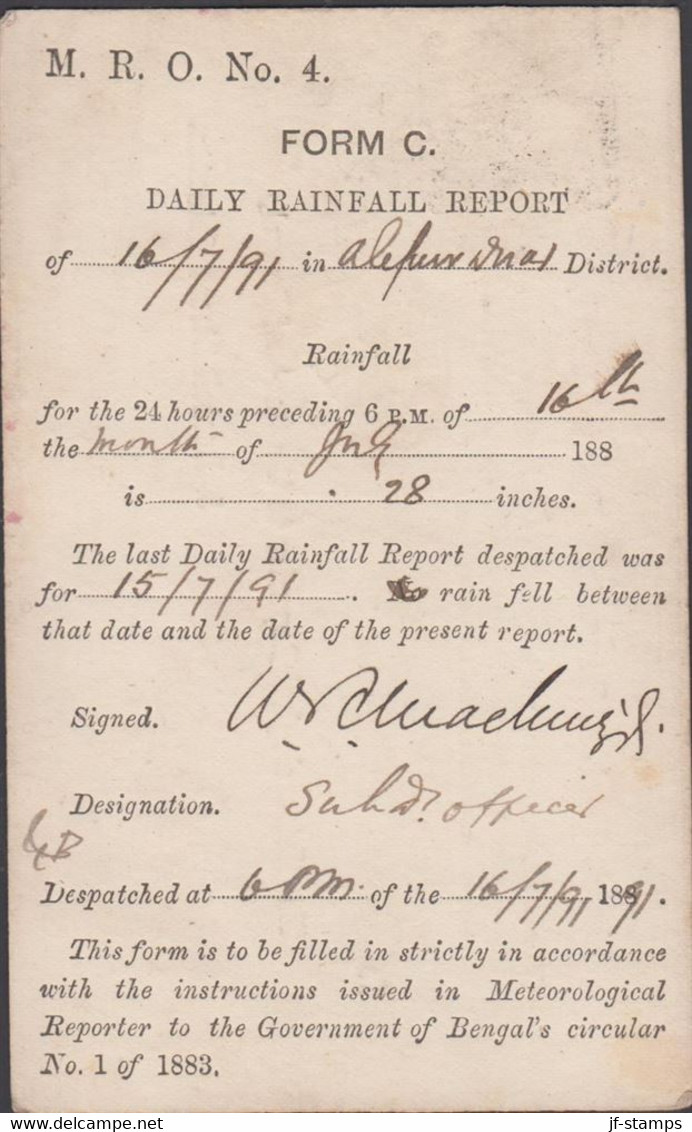 M. R. O. No. 4.
FORM C.
DAILY RAINFALL REPORT
of 16/7/91 in District.
Rainfall
for the 24 hours preceding 6 P.M. of 16th
the month of July 188
is .28 inches.
The last Daily Rainfall Report despatched was
for 15/7/91. rain fell between
that date and the date of the present report.
Signed.
Designation. officer
Despatched at 6 PM. of the 16/7/91 1891.
This form is to be filled in strictly in accordance
with the instructions issued in Meteorological
Reporter to the Government of Bengal's circular
No. 1 of 1883.
Delcampe.net
jf-stamps